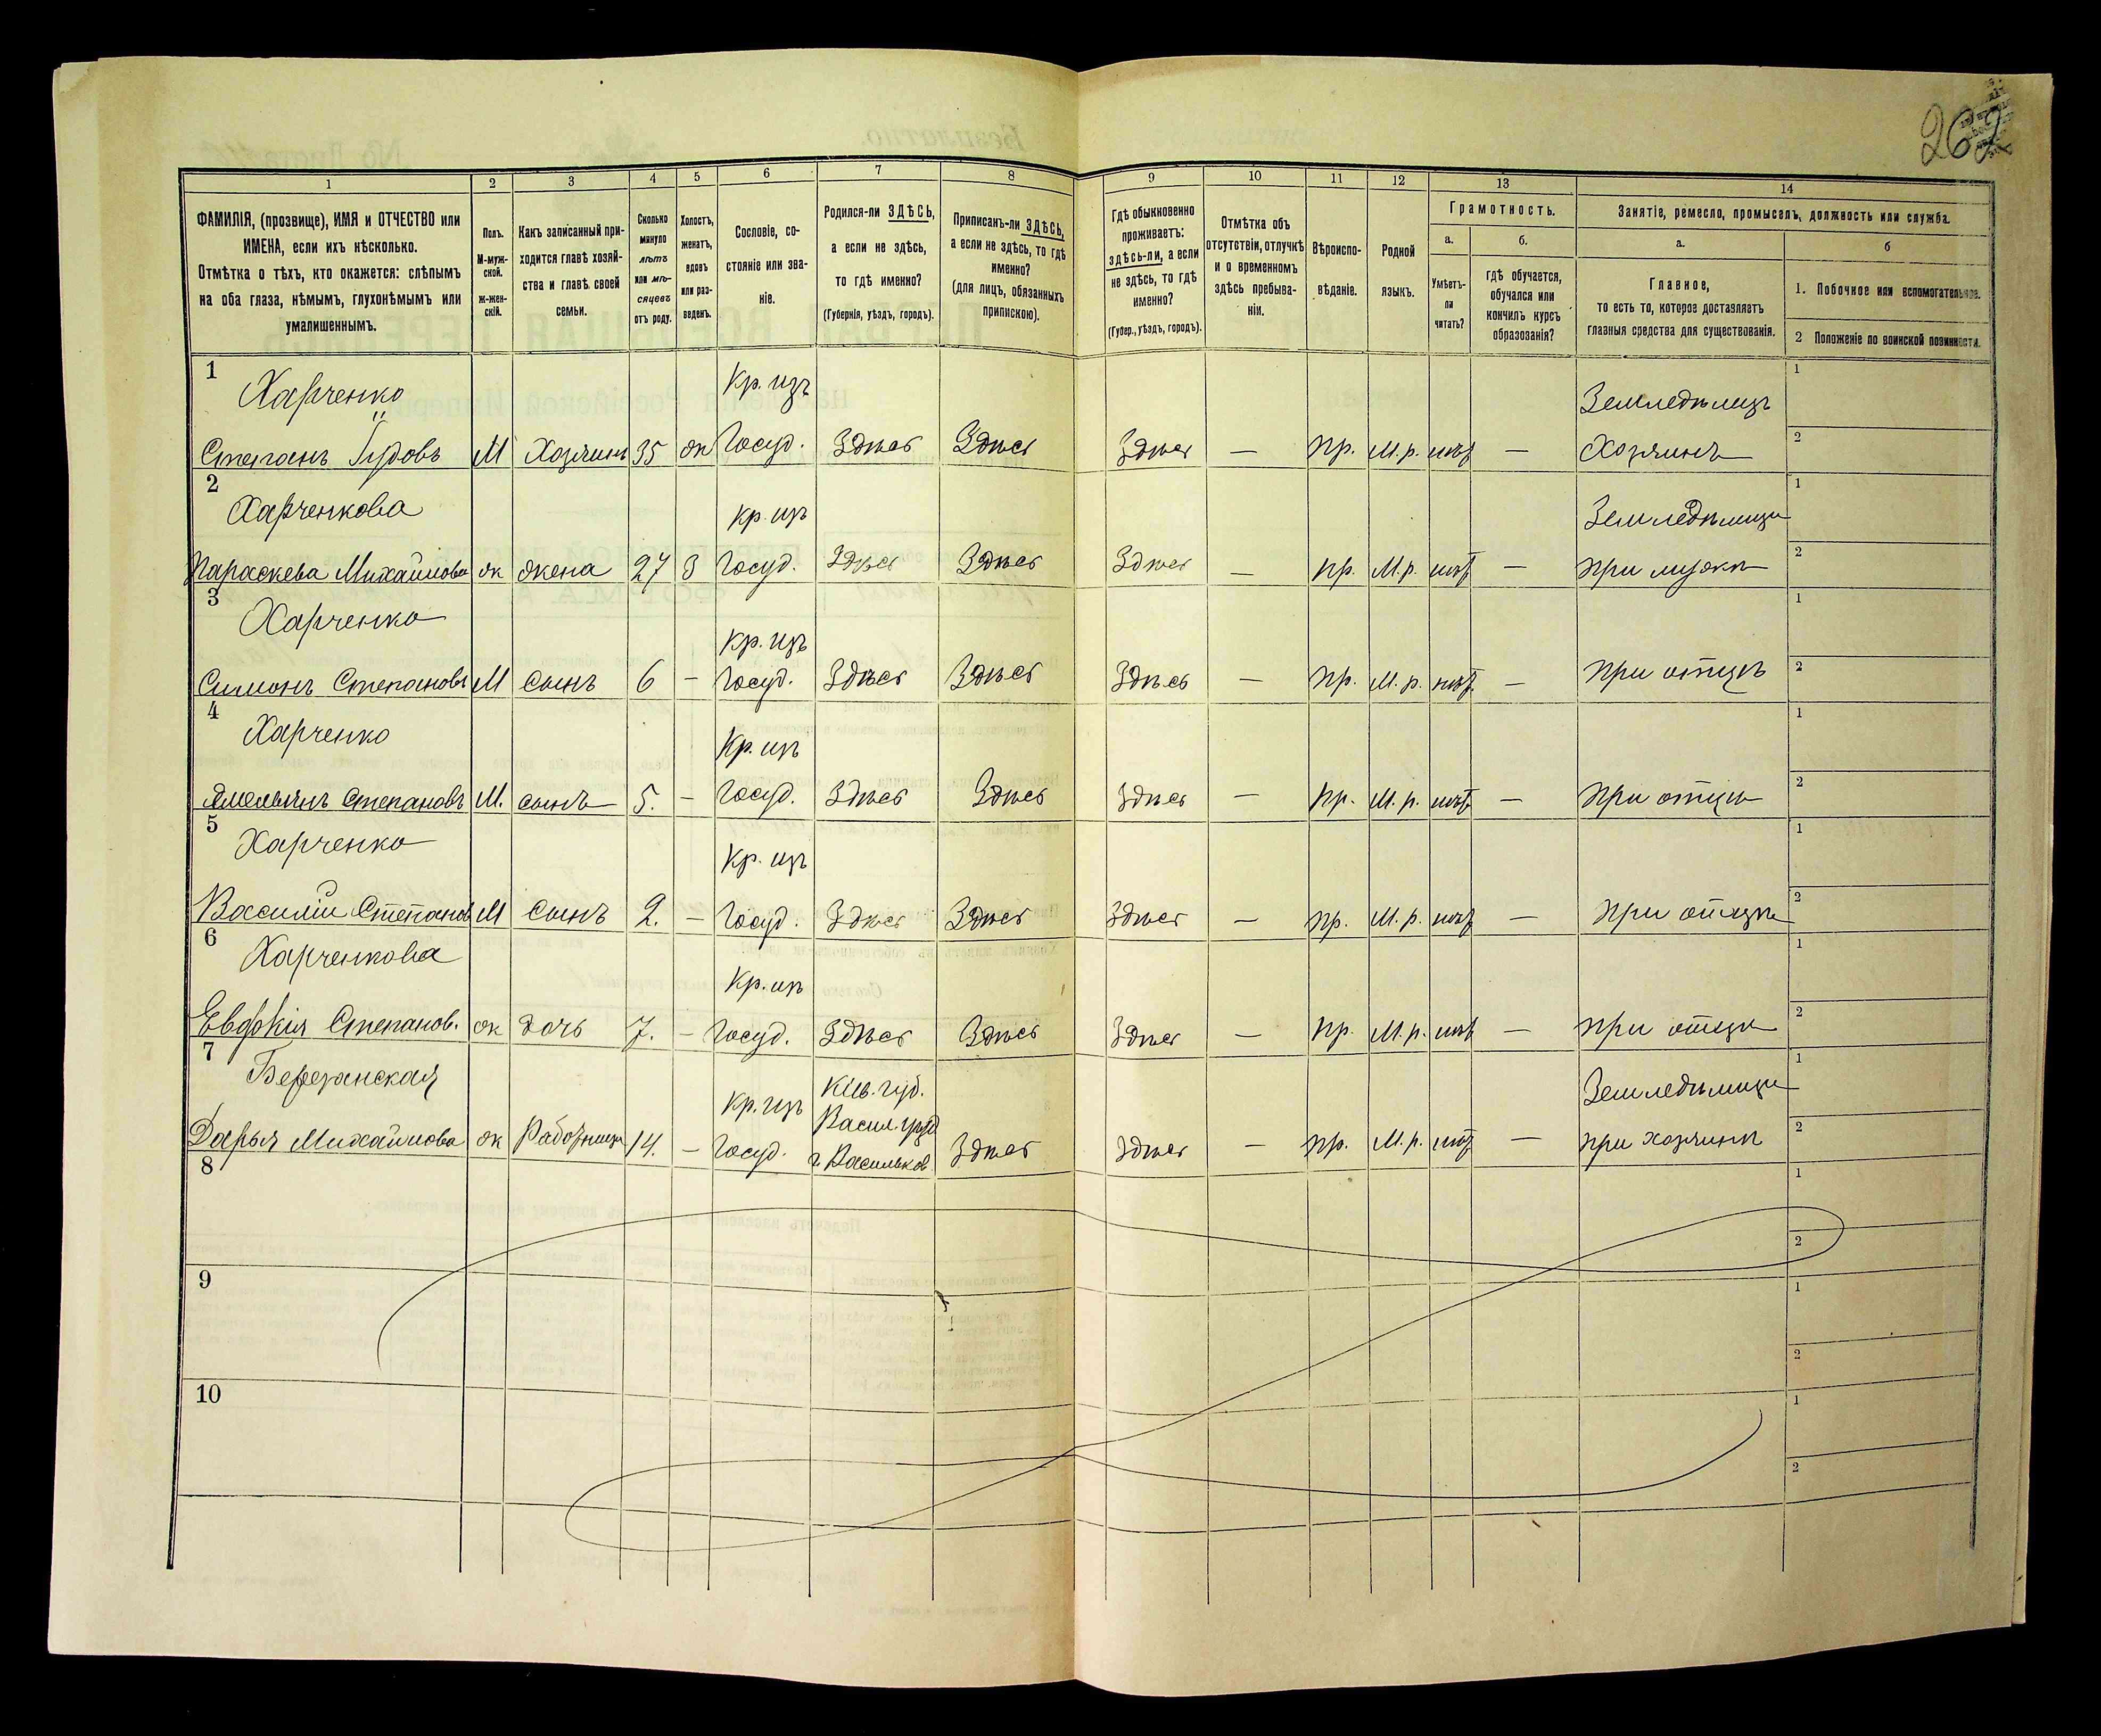 262
1 2 3 4 5 6 7 8 9 10 11 12 13 14
ФАМИЛІЯ, (прозвище), ИМЯ и ОТЧЕСТВО или ИМЕНА, если ихъ нѣсколько.
Отмѣтка о тѣхъ, кто окажется: слѣпымъ на оба глаза, нѣмымъ, глухонѣмымъ или умалишеннымъ.
Полъ. М-мужской. ж-женскій.
Какъ записанный приходится главѣ хозяйства и главѣ своей семьи.
Сколько минуло лѣтъ или мѣсяцевъ отъ роду.
Холостъ, женатъ, вдовъ или разведенъ.
Сословіе, состояніе или званіе.
Родился-ли ЗДѢСЬ, а если не здѣсь, то гдѣ именно? (Губернія, уѣздъ, городъ).
Приписанъ-ли ЗДѢСЬ, а если не здѣсь, то гдѣ именно? (для лицъ, обязанныхъ припискою).
Гдѣ обыкновенно проживаетъ: здѣсь-ли, а если не здѣсь, то гдѣ именно? (Губер., уѣздъ, городъ).
Отмѣтка объ отсутствіи, отлучкѣ и о временномъ здѣсь пребываніи.
Вѣроисповѣданіе.
Родной языкъ.
Грамотность.
а. Умѣетъ-ли читать?
б. гдѣ обучается, обучался или кончилъ курсъ образованія?
Занятіе, ремесло, промыселъ, должность или служба.
а. Главное, то есть то, которое доставляетъ главныя средства для существованія.
б
1. Побочное или вспомогательное.
2 Положеніе по воинской повинности.
1 Харченко Кр. изъ Земледѣлецъ 1
Степанъ М Хозяинъ 35 ж Госуд. Здѣсь Здѣсь Здѣсь — Пр. М.р. нѣт — Хозяинъ 2
2 Харченкова Кр. изъ Земледѣлецъ 1
Параскева Михайлова ж жена 27 З Госуд. Здѣсь Здѣсь Здѣсь — пр. М.р. нѣт — при мужѣ 2
3 Харченко Кр. изъ 1
Симонъ Степановъ М сынъ 6 — Госуд. Здѣсь Здѣсь Здѣсь — Пр. М.р. нѣт — при отцѣ 2
4 Харченко Кр. изъ 1
Емельянъ Степановъ М. сынъ 5. — Госуд. Здѣсь Здѣсь Здѣсь — пр. М.р. нѣт — при отцѣ 2
5 Харченко Кр. изъ 1
Василій Степанов М сынъ 2. — Госуд. Здѣсь Здѣсь Здѣсь — пр. М.р. нѣт — при отцѣ 2
6 Харченкова Кр. изъ 1
Евдокія Степанов. ж дочь 7. — Госуд. Здѣсь Здѣсь Здѣсь — пр. М.р. нѣт — при отцѣ 2
7 Березанская Кр. изъ Кіев. губ. Земледѣлецъ 1
Васил. уѣзд
Дарья Михайлова ж Работница 14. — Госуд. г. Васильков Здѣсь Здѣсь — пр. М.р. нѣт — при хозяинѣ 2
8 1
2
9 1
2
10 1
2